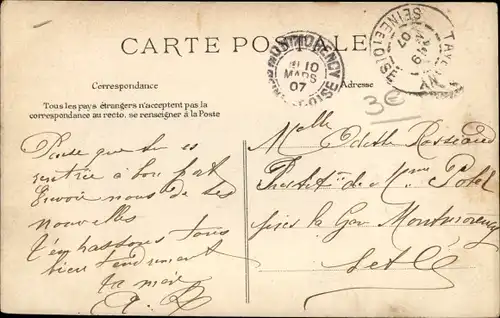 CARTE POSTALE
MONTMORENCY
10
MARS
07
SEINE-ET-OISE
TAV
07
SEINE ET OISE
3€
Correspondance
Adresse
Tous les pays étrangers n'acceptent pas la
correspondance au recto, se renseigner à la Poste
que tu es
rentrée à bon port
Envoie nous de tes
nouvelles
t'embrassons tous
bien tendrement
ta mère
Melle Odette
de Mme Potel
la Gare Montmorency
S et O